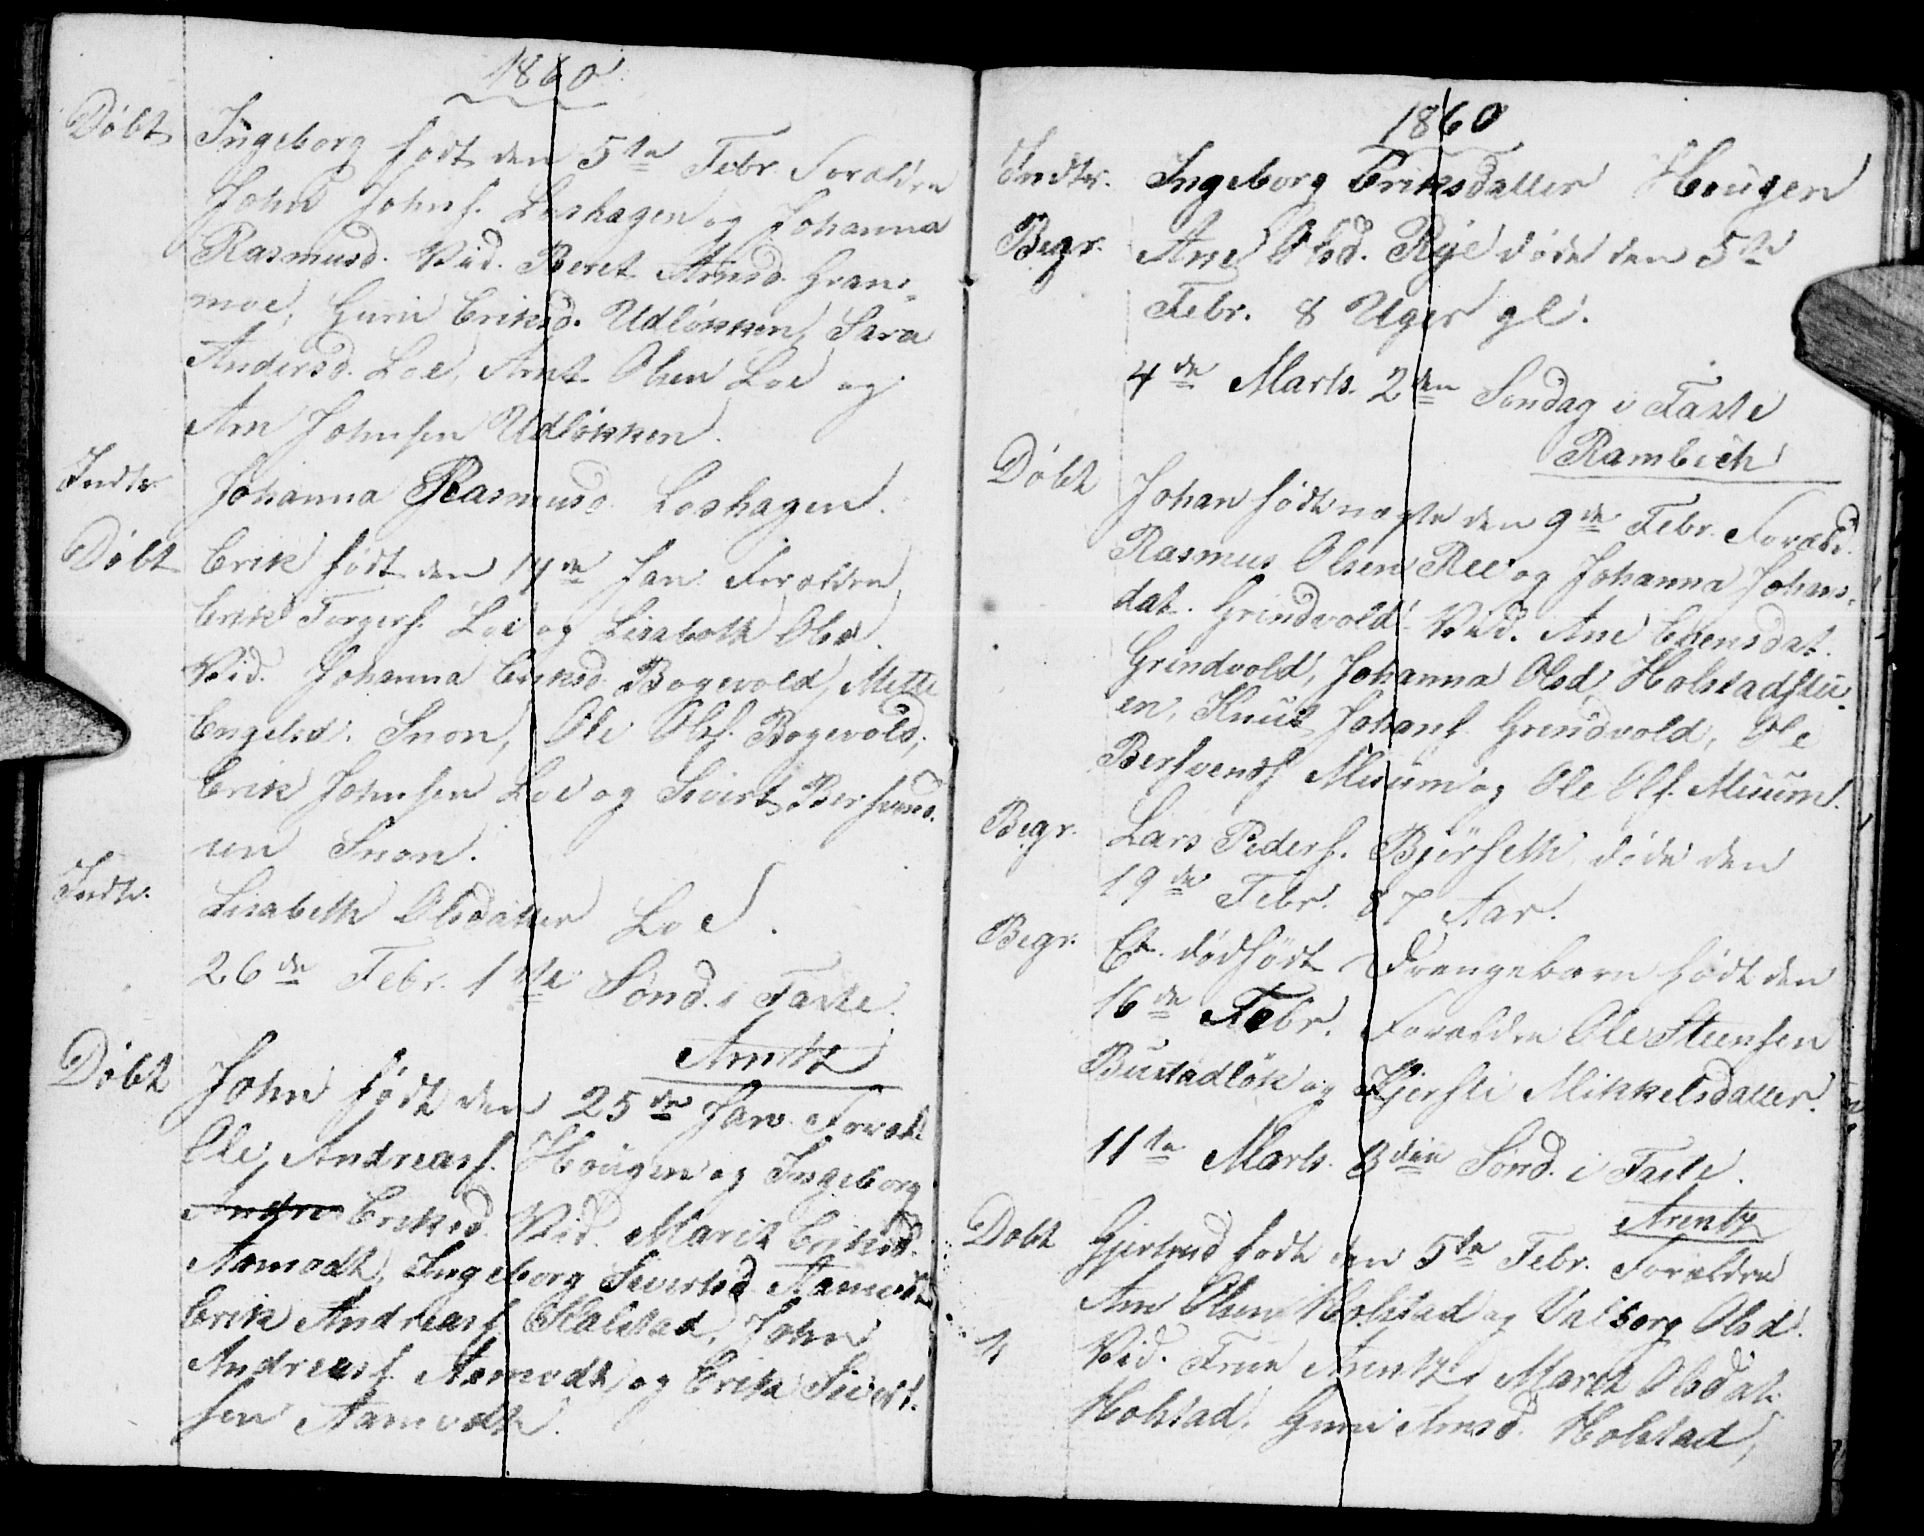 1860
Döbt Ingeborg födt den 5te Febr. Forældre
John Johns. Loshagen og Johanna
Rasmusd. Vid. Beret Arnsd. Gran-
moe, Guru Eriksd. Udløkken, Sara
Andersd. Loe, Arnt Olsen Loe og
Arn Johnsen Udløkken.
Indtr. Johanna Rasmusd. Loshagen.
Döbt Erik födt den 14de Jan. Forældre
Erik Torgers. Loe og Lisabeth Olsd.
Vid. Johanna Eriksd. Bogevold, Mette
Engelsd. Snon, Ole Ols. Bogevold,
Erik Johnsen Loe og Sivert Bersvend-
sen Snon.
Indtr. Lisabeth Olsdatter Loe.
26de Febr. 1ste Sönd. i Faste.
Arntz
Döbt John födt den 25de Jan. Foræld.
Ole Andreas. Hougen og Ingeborg
Andre Eriksd. Vid. Marit Eriksd.
Aamodt, Ingeborg Sivertsd. Aamodt
Erik Andreas. Kalstad, John
Andreas. Aamodt og Erik Sivert-
sen Aamodt.
1860
Indtr. Ingeborg Eriksdatter Hougen
Begr. Ane Olsd. Rye döde den 5te
Febr. 8 Uger gl.
4de Marts. 2den Söndag i Faste
Rambech
Döbt Johan födt uægte den 9de Febr. Foræld.
Rasmus Olsen Ree og Johanna Johans-
dat. Grindvold. Vid. Ane Evensdat.
Grindvold, Johanna Olsd. Holstadstu-
en, Knut Johans. Grindvold, Ole
Bersvends. Muum og Ole Ols. Muum.
Begr. Lars Peders. Bjørseth döde den
19de Febr. 87 Aar.
Begr. Et dödfödt Drengebarn födt den
16de Febr. Forældre Ole Steensen
Bustadløk og Kjersti Mikkelsdatter.
11te Marts. 3die Sönd. i Faste.
Arentz
Döbt Gjertrud födt den 5te Febr. Forældre
Arn Olsen Holstad og Valborg Olsd.
Vid. Frue Arentz, Marit Olsdat.
Holstad, Guru Arnsd. Holstad,